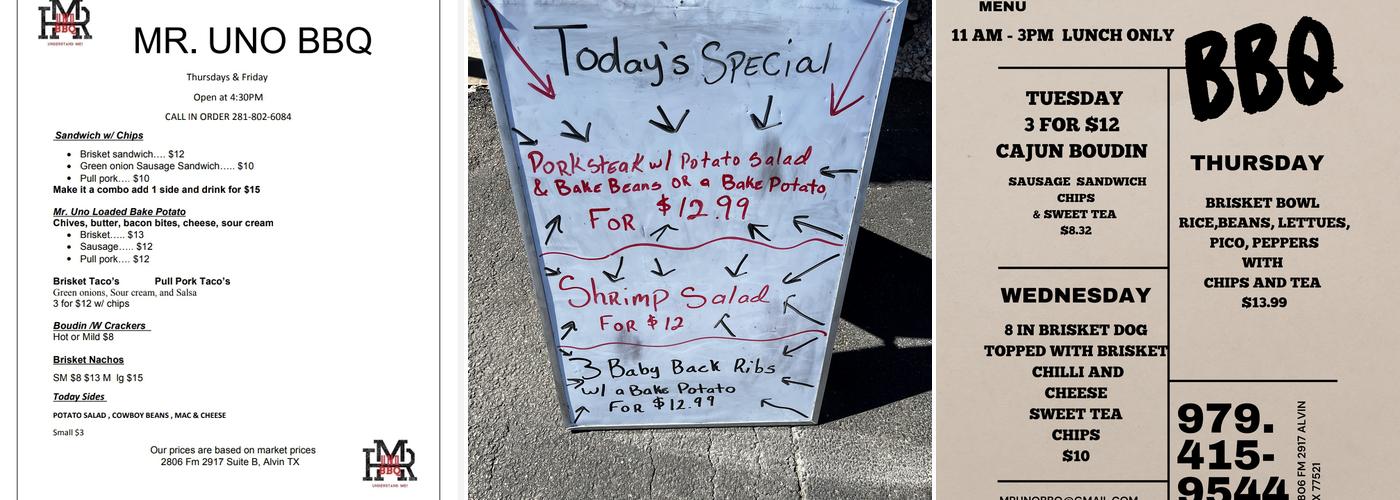 HMR
BBQ
UNDERSTAND ME!!
MR. UNO BBQ
Thursdays & Friday
Open at 4:30PM
CALL IN ORDER 281-802-6084
Sandwich w/ Chips
• Brisket sandwich…. $12
• Green onion Sausage Sandwich….. $10
• Pull pork…. $10
Make it a combo add 1 side and drink for $15
Mr. Uno Loaded Bake Potato
Chives, butter, bacon bites, cheese, sour cream
• Brisket….. $13
• Sausage….. $12
• Pull pork…. $12
Brisket Taco's Pull Pork Taco's
Green onions, Sour cream, and Salsa
3 for $12 w/ chips
Boudin /W Crackers
Hot or Mild $8
Brisket Nachos
SM $8 $13 M lg $15
Today Sides
POTATO SALAD , COWBOY BEANS , MAC & CHEESE
Small $3
Our prices are based on market prices
2806 Fm 2917 Suite B, Alvin TX
HMR
BBQ
UNDERSTAND ME!!
Today's SPECIAL
PORK STEAK w/ Potato Salad
& Bake Beans OR a Bake Potato,
FOR $12.99
Shrimp Salad
FOR $12
3 Baby Back Ribs
w/ a Bake Potato
FOR $12.99
MENU
11 AM - 3PM LUNCH ONLY
BBQ
TUESDAY
3 FOR $12
CAJUN BOUDIN
SAUSAGE SANDWICH
CHIPS
& SWEET TEA
$8.32
WEDNESDAY
8 IN BRISKET DOG
TOPPED WITH BRISKET
CHILLI AND
CHEESE
SWEET TEA
CHIPS
$10
MRUNOBBQ@GMAIL.COM
THURSDAY
BRISKET BOWL
RICE,BEANS, LETTUES,
PICO, PEPPERS
WITH
CHIPS AND TEA
$13.99
979.
415-
9544
806 FM 2917 ALVIN
X 77521